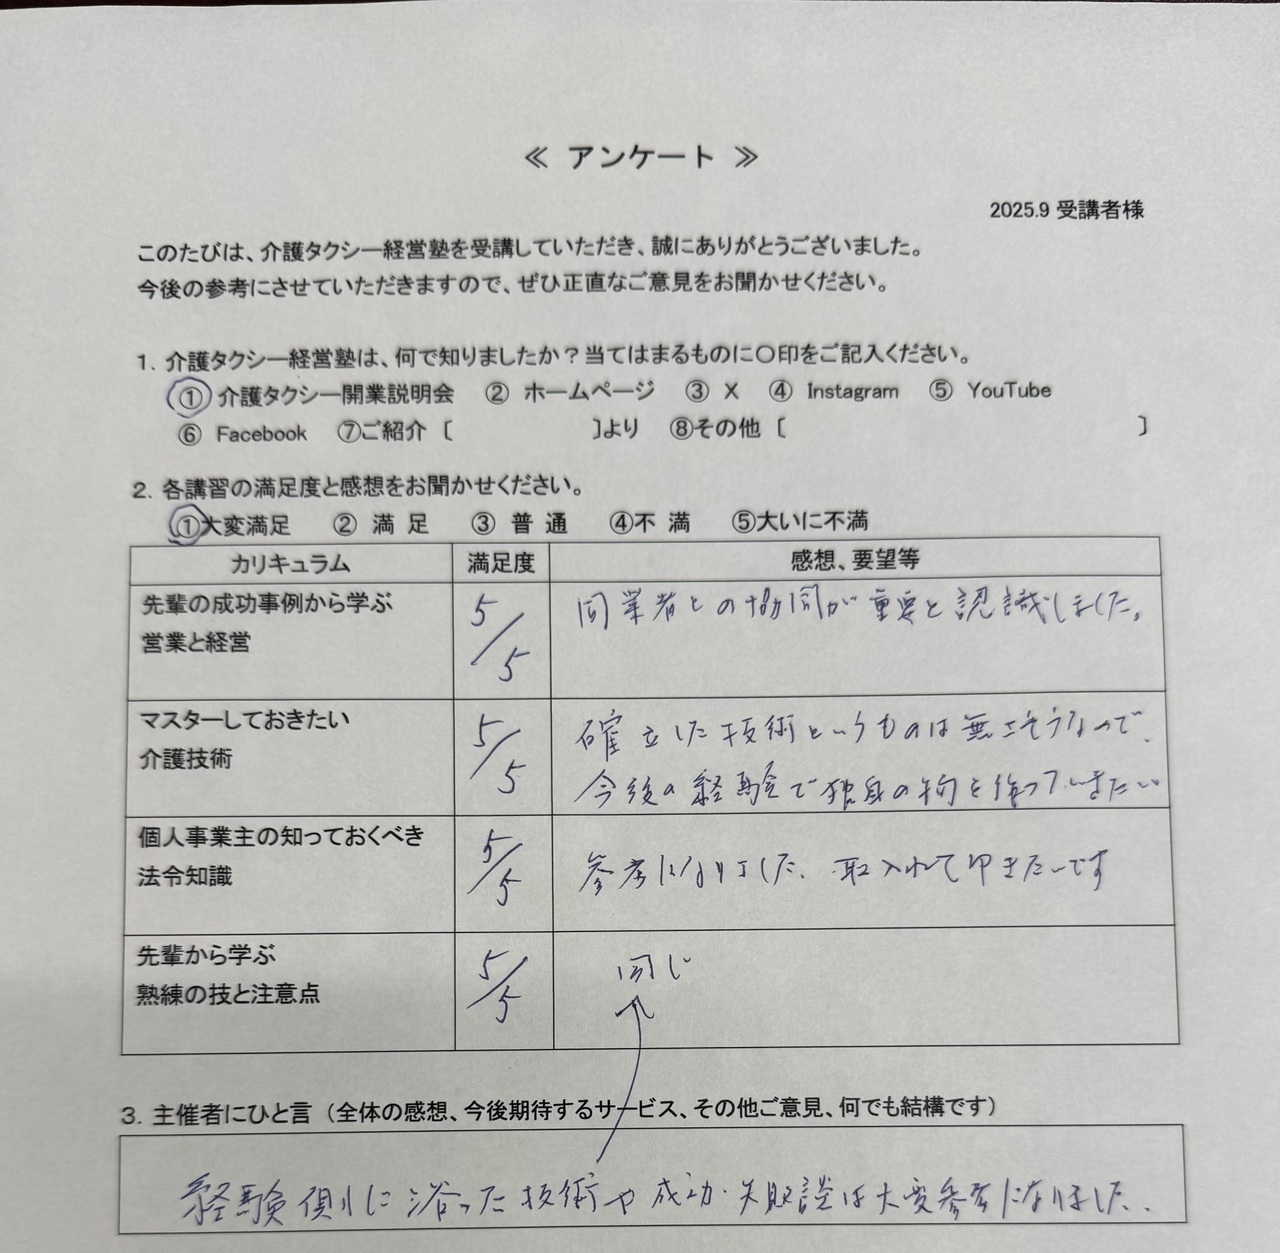 ≪ アンケート ≫
2025.9 受講者様
このたびは、介護タクシー経営塾を受講していただき、誠にありがとうございました。
今後の参考にさせていただきますので、ぜひ正直なご意見をお聞かせください。
1. 介護タクシー経営塾は、何で知りましたか？当てはまるものに〇印をご記入ください。
① 介護タクシー開業説明会 ② ホームページ ③ X ④ Instagram ⑤ YouTube
⑥ Facebook ⑦ご紹介〔 〕より ⑧その他〔 〕
2. 各講習の満足度と感想をお聞かせください。
①大変満足 ② 満 足 ③ 普 通 ④不 満 ⑤大いに不満
カリキュラム 満足度 感想、要望等
先輩の成功事例から学ぶ
営業と経営
5/5
同業者との協同が重要と認識しました。
マスターしておきたい
介護技術
5/5
確立した技術というものは無さそうなので、
今後の経験で独自の物を作っていきたい
個人事業主の知っておくべき
法令知識
5/5
参考になりました、取入れて行きたいです
先輩から学ぶ
熟練の技と注意点
5/5
同じ
3. 主催者にひと言（全体の感想、今後期待するサービス、その他ご意見、何でも結構です）
経験側に沿った技術や成功・失敗談は大変参考になりました.